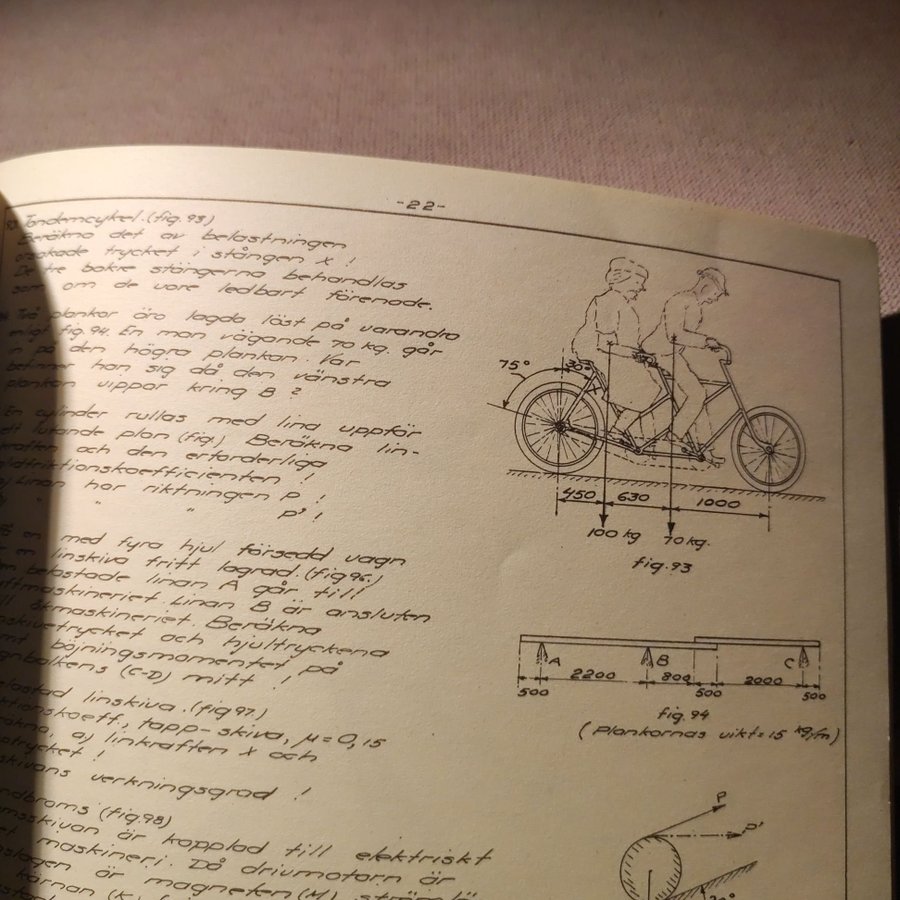 -22-
Tandemcykel. (fig. 93)
Beräkna det av belastningen
orsakade trycket i stången X !
De tre bakre stängerna behandlas
som om de vore ledbart förenade.
Två plankor äro lagda löst på varandra
enligt fig. 94. En man vägande 70 kg. går
på den högra plankan. Var
befinner han sig då den vänstra
plankan vippar kring B ?
En cylinder rullas med lina uppför
ett lutande plan (fig) Beräkna lin-
kraften och den erforderliga
friktionskoefficienten !
Linan har riktningen P !
" " P' !
en med fyra hjul försedd vagn
är en linskiva fritt lagrad. (fig 96.)
Den belastade linan A går till
Linan B är ansluten
till åkmaskineriet. Beräkna
och hjultryckena
samt böjningsmomentet på
(C-D) mitt !
linskiva. (fig 97)
tapp-skiva, μ = 0,15
a) linkraften X och
!
verkningsgrad !
(fig 98)
är kopplad till elektriskt
maskineri. Då drivmotorn är
är magneten (M)
kärnan (K)
75°
30°
450
630
1000
100 kg
70 kg.
fig. 93
A
B
C
500
2200
800
500
2000
500
fig. 94
(Plankornas vikt = 15 kg/m)
P
P'